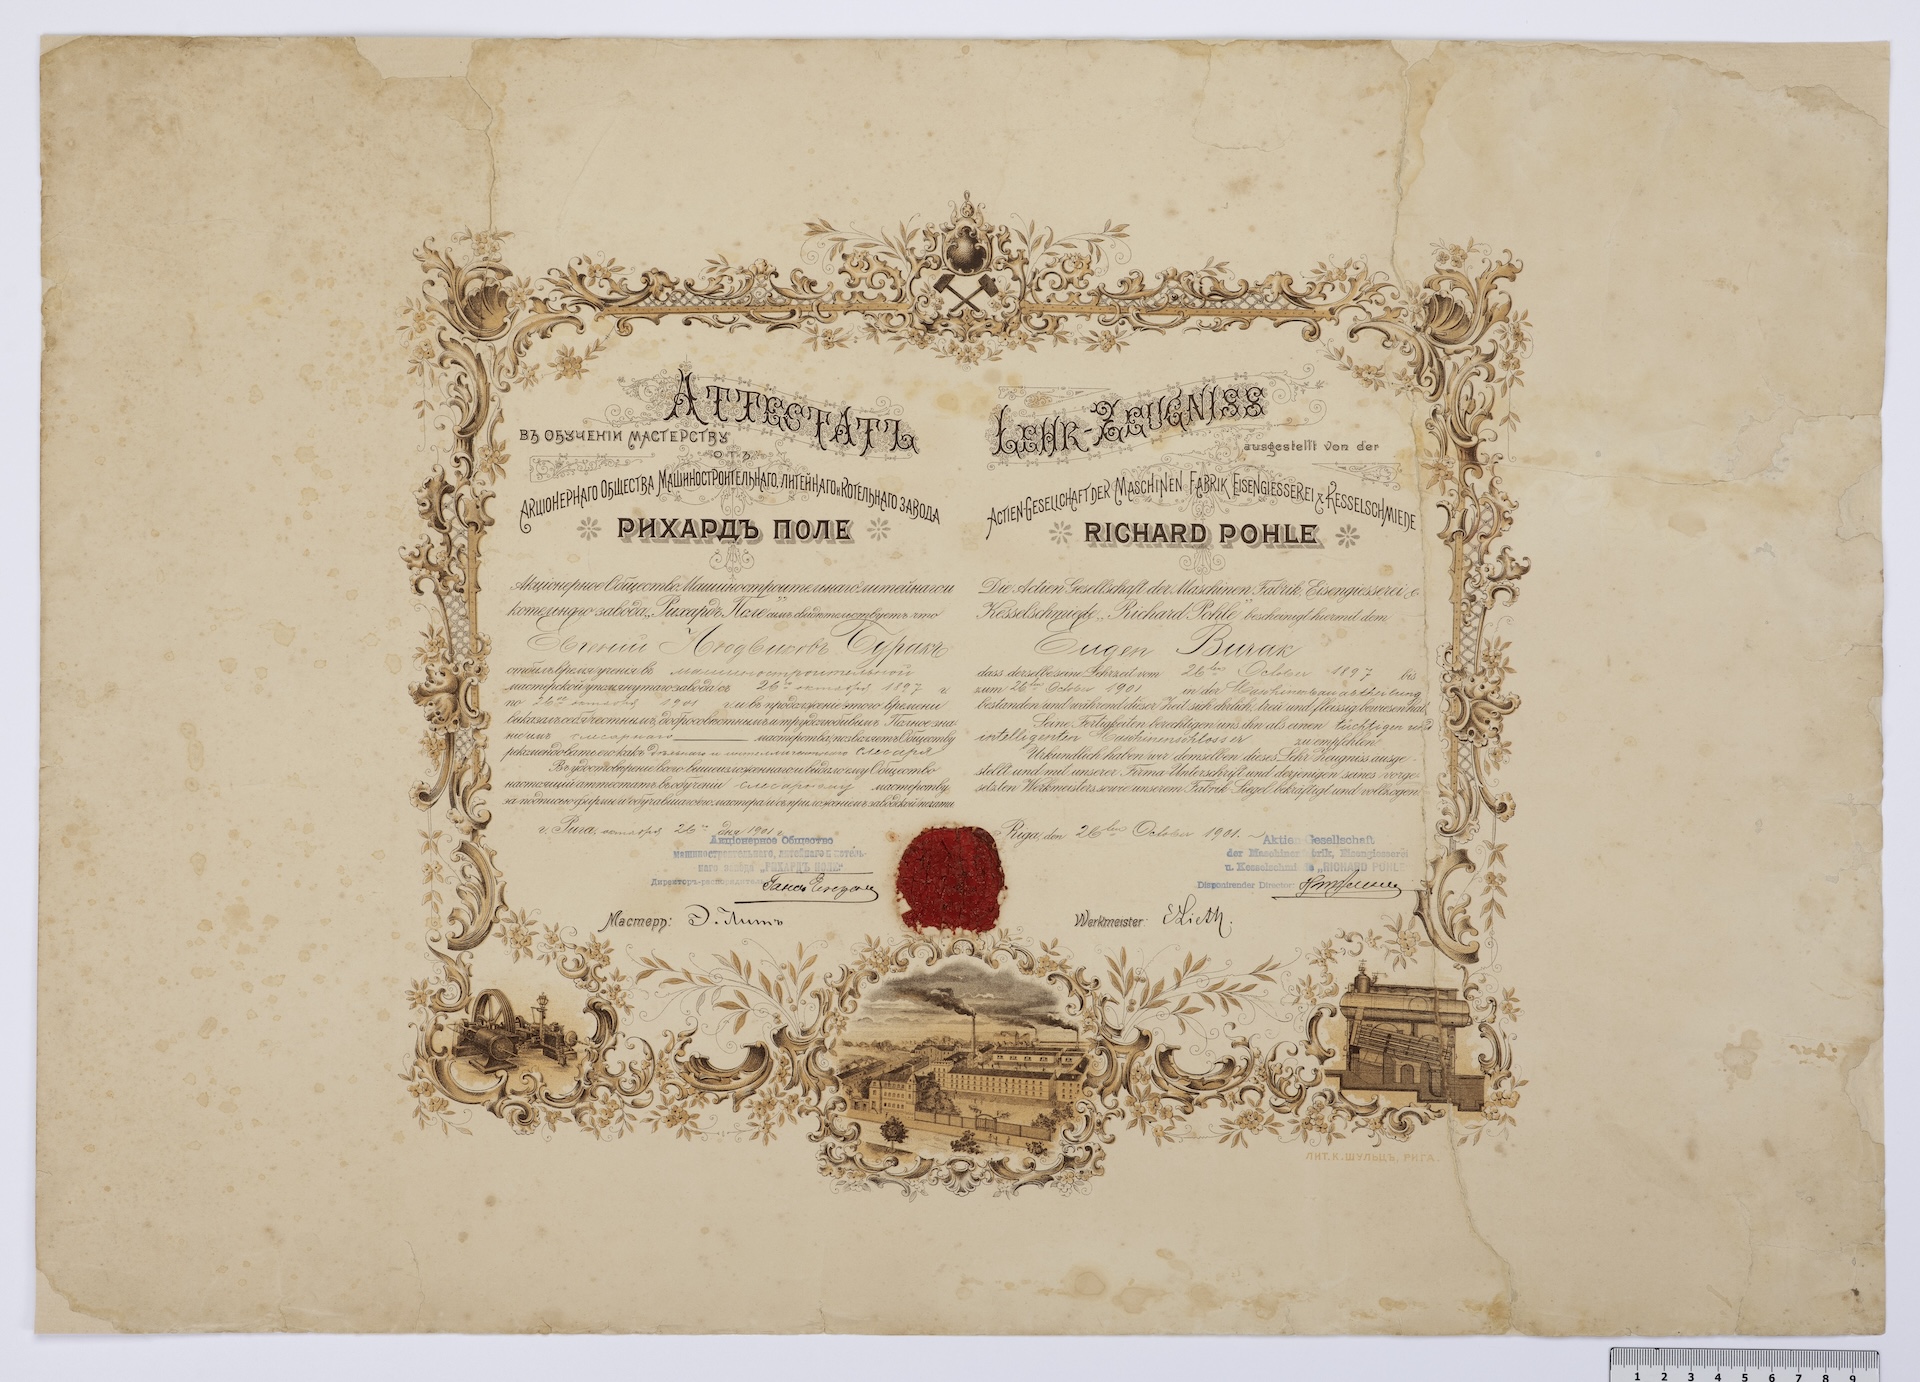 АТТЕСТАТЪ
ВЪ ОБУЧЕНІИ МАСТЕРСТВУ
ОТЪ
АКЦІОНЕРНАГО ОБЩЕСТВА МАШИНОСТРОИТЕЛЬНАГО, ЛИТЕЙНАГО И КОТЕЛЬНАГО ЗАВОДА
РИХАРДЪ ПОЛЕ
Акціонерное Общество Машиностроительнаго литейнаго и
котельнаго завода „Рихардъ Поле" симъ свидѣтельствуетъ что
Евгеній Людвиговъ Буракъ
отбылъ время ученія въ машиностроительной
мастерской упомянутаго завода съ 26го октября 1897 г.
по 26го октября 1901 г. и въ продолженіе этого времени
выказалъ себя честнымъ, добросовѣстнымъ и трудолюбивымъ. Полное зна-
ніе имъ слесарнаго мастерства, позволяетъ Обществу
рекомендовать его какъ дѣльнаго и интеллигентнаго слесаря
Въ удостовѣреніе всего вышеизложеннаго и выдало ему Общество
настоящій аттестатъ въ обученіи слесарному мастерству,
за подписью фирмы и обучавшаго его мастера и съ приложеніемъ заводской печати
г. Рига, октября 26го дня 1901 г.
Акціонерное Общество
машиностроительнаго, литейнаго и котель-
наго завода „РИХАРДЪ ПОЛЕ"
Директоръ-распорядитель
Мастеръ: Э. Литъ
LEHR-ZEUGNISS
ausgestellt von der
ACTIEN-GESELLSCHAFT DER MASCHINEN FABRIK EISENGIESSEREI & KESSELSCHMIEDE
RICHARD POHLE
Die Actien Gesellschaft der Maschinen Fabrik, Eisengiesserei &
Kesselschmiede „Richard Pohle" bescheinigt hiermit dem
Eugen Burak
dass derselbe seine Lehrzeit vom 26ten October 1897 bis
zum 26ten October 1901 in der Maschinenbauabtheilung
bestanden und während dieser Zeit sich ehrlich, treu und fleissig bewiesen hat.
Seine Fertigkeiten berechtigen uns ihn als einen tüchtigen und
intelligenten Maschinenschlosser zu empfehlen
Urkundlich haben wir demselben dieses Lehr Zeugniss ausge-
stellt und mit unserer Firma Unterschrift und derjenigen seines vorge-
setzten Werkmeisters sowie unserem Fabrik Siegel bekräftigt und vollzogen
Riga, den 26ten October 1901.
Aktie Gesellschaft
der Maschinen rik, Eisengiesserei
u. Kesselschmi e „RICHARD POHLE"
Disponirender Director:
Werkmeister: E Lieth.
ЛИТ. К. ШУЛЬЦЪ, РИГА.
1 2 3 4 5 6 7 8 9